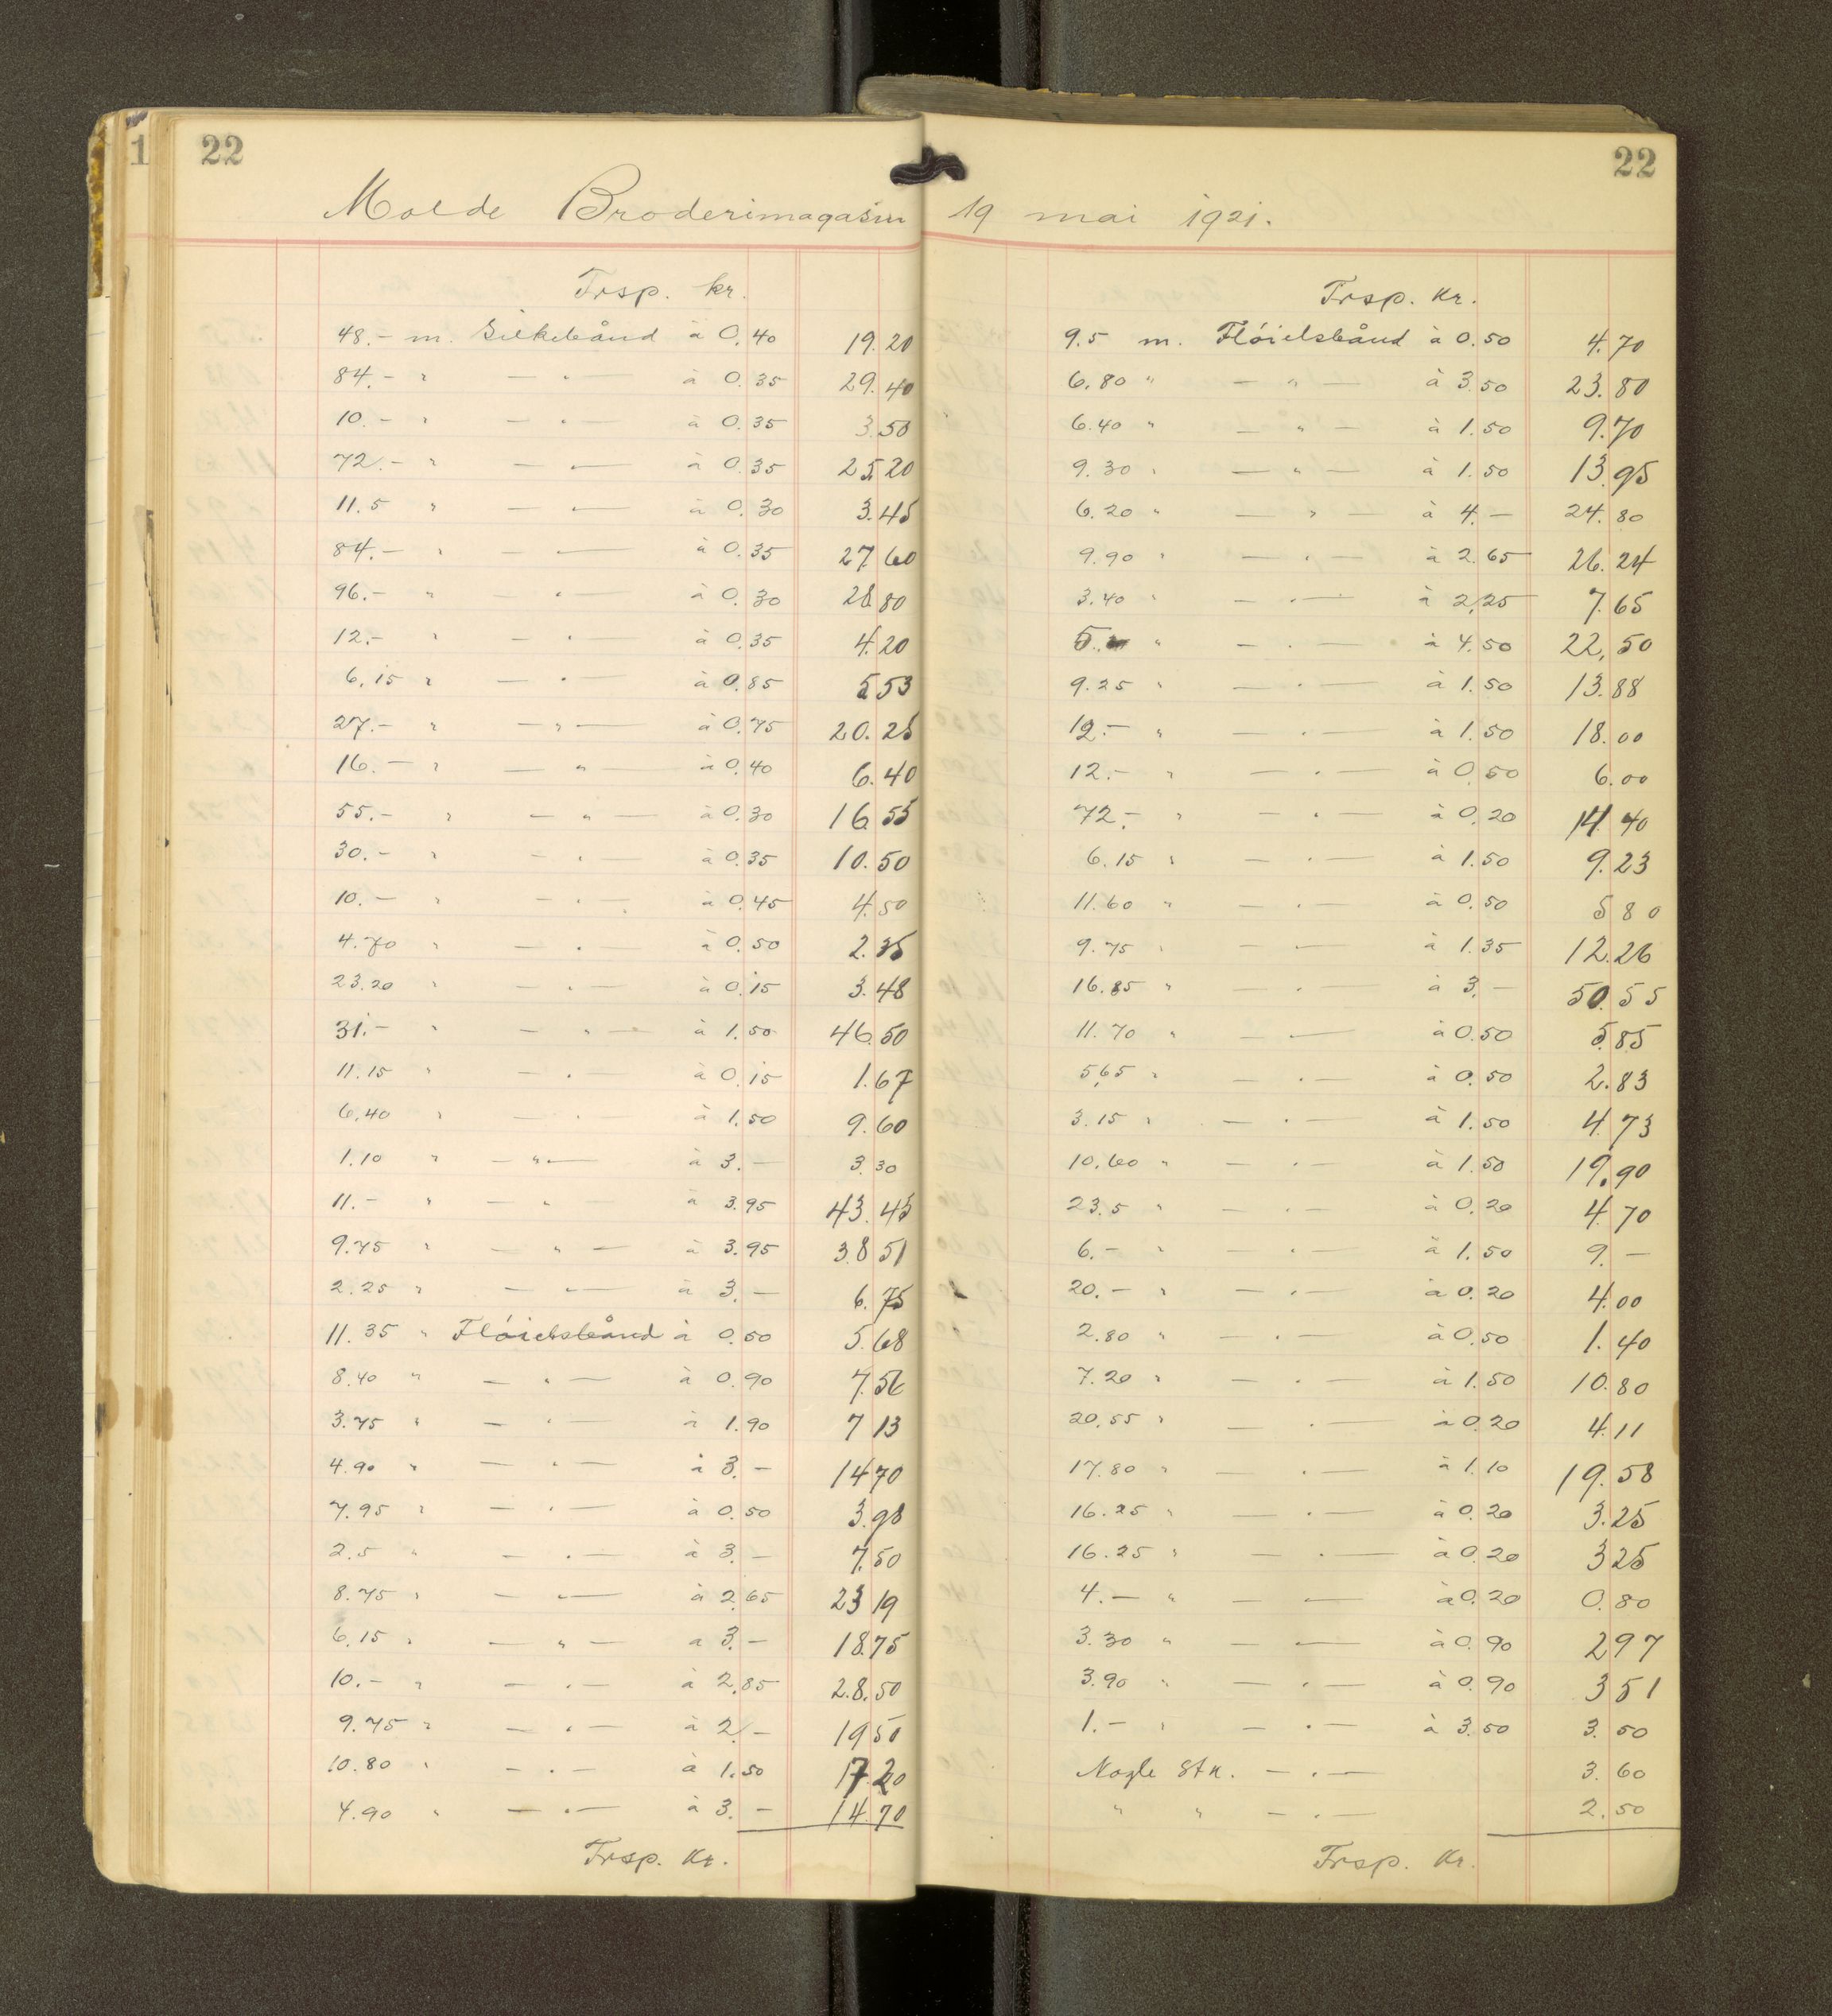 1 22
Molde Broderimagasin
Trsp. kr.
48.- m. Silkebånd à 0.40 19.20
84.- " — " — à 0.35 29.40
10.- " — " — à 0.35 3.50
72.- " — " — à 0.35 25.20
11.5 " — " — à 0.30 3.45
84.- " — " — à 0.35 27.60
96.- " — " — à 0.30 28.80
12.- " — " — à 0.35 4.20
6.15 " — " — à 0.85 5.53
27.- " — " — à 0.75 20.25
16.- " — " — à 0.40 6.40
55.- " — " — à 0.30 16.55
30.- " — " — à 0.35 10.50
10.- " — " — à 0.45 4.50
4.70 " — " — à 0.50 2.35
23.20 " — " — à 0.15 3.48
31.- " — " — à 1.50 46.50
11.15 " — " — à 0.15 1.67
6.40 " — " — à 1.50 9.60
1.10 " — " — à 3.— 3.30
11.- " — " — à 3.95 43.45
9.75 " — " — à 3.95 38.51
2.25 " — " — à 3.— 6.75
11.35 " Fløielsbånd à 0.50 5.68
8.40 " — " — à 0.90 7.56
3.75 " — " — à 1.90 7 13
4.90 " — " — à 3.— 14.70
7.95 " — " — à 0.50 3.98
2.5 " — " — à 3.— 7.50
8.75 " — " — à 2.65 23 19
6.15 " — " — a 3.— 18.75
10.- " — " — à 2.85 28.50
9.75 " — " — à 2.— 19 50
10.80 " — " — à 1.50 17.20
4.90 " — " — à 3.— 14.70
Trsp. Kr.
22
19 mai 1921.
Trsp. Kr.
9.5 m. Fløielsbånd à 0.50 4.70
6.80 " — " — à 3.50 23.80
6.40 " — " — à 1.50 9.70
9.30 " — " — à 1.50 13.95
6.20 " — " — à 4.— 24.80
9.90 " — " — à 2.65 26.24
3.40 " — " — à 2.25 7.65
5. " — " — à 4.50 22.50
9.25 " — " — à 1.50 13.88
12.- " — " — à 1.50 18.00
12.- " — " — à 0.50 6.00
72.- " — " — à 0.20 14.40
6.15 " — " — à 1.50 9.23
11.60 " — " — à 0.50 5 80
9.75 " — " — à 1.35 12.26
16.85 " — " — à 3.— 50.55
11.70 " — " — à 0.50 5.85
5.65 " — " — à 0.50 2.83
3.15 " — " — à 1.50 4.73
10.60 " — " — à 1.50 19.90
23.5 " — " — à 0.20 4.70
6.- " — " — à 1.50 9.—
20.- " — " — à 0.20 4.00
2.80 " — " — à 0.50 1.40
7.20 " — " — à 1.50 10.80
20.55 " — " — à 0.20 4.11
17.80 " — " — à 1.10 19.58
16.25 " — " — à 0.20 3.25
16.25 " — " — à 0.20 3 25
4.- " — " — à 0.20 0.80
3.30 " — " — à 0.90 2 97
3.90 " — " — à 0.90 3 51
1.- " — " — à 3.50 3.50
Nogle Stk. — " — 3.60
" " — " — 2.50
Trsp. Kr.